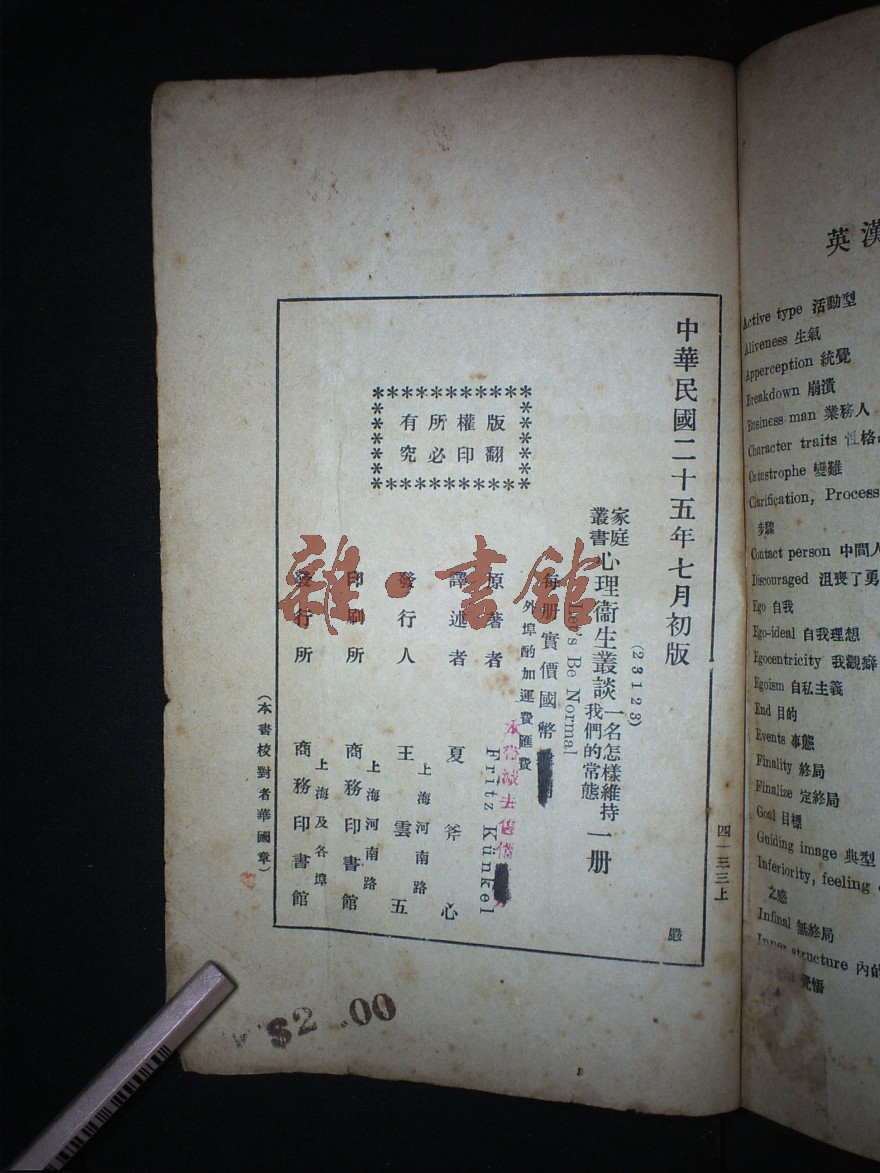 中華民國二十五年七月初版
(23123)
家庭叢書 心理衞生叢談 一名怎樣維持我們的常態 一册
Let's Be Normal
每册實價國幣
外埠酌加運費匯費
原著者 Fritz Künkel
譯述者 夏斧心
發行人 王雲五
上海河南路
印刷所 商務印書館
上海河南路
發行所 商務印書館
上海及各埠
(本書校對者華國章)
版權所有
翻印必究
四一三三上
嚴
雜·書館
$2.00
英漢
Active type 活動型
Aliveness 生氣
Apperception 統覺
Breakdown 崩潰
Business man 業務人
Character traits 性格
Catastrophe 變難
Clarification, Process
步驟
Contact person 中間人
Discouraged 沮喪了勇
Ego 自我
Ego-ideal 自我理想
Egocentricity 我觀癖
Egoism 自私主義
End 目的
Events 事態
Finality 終局
Finalize 定終局
Goal 目標
Guiding image 典型
Inferiority, feeling
之感
Infinal 無終局
Inner structure 內的
覺悟